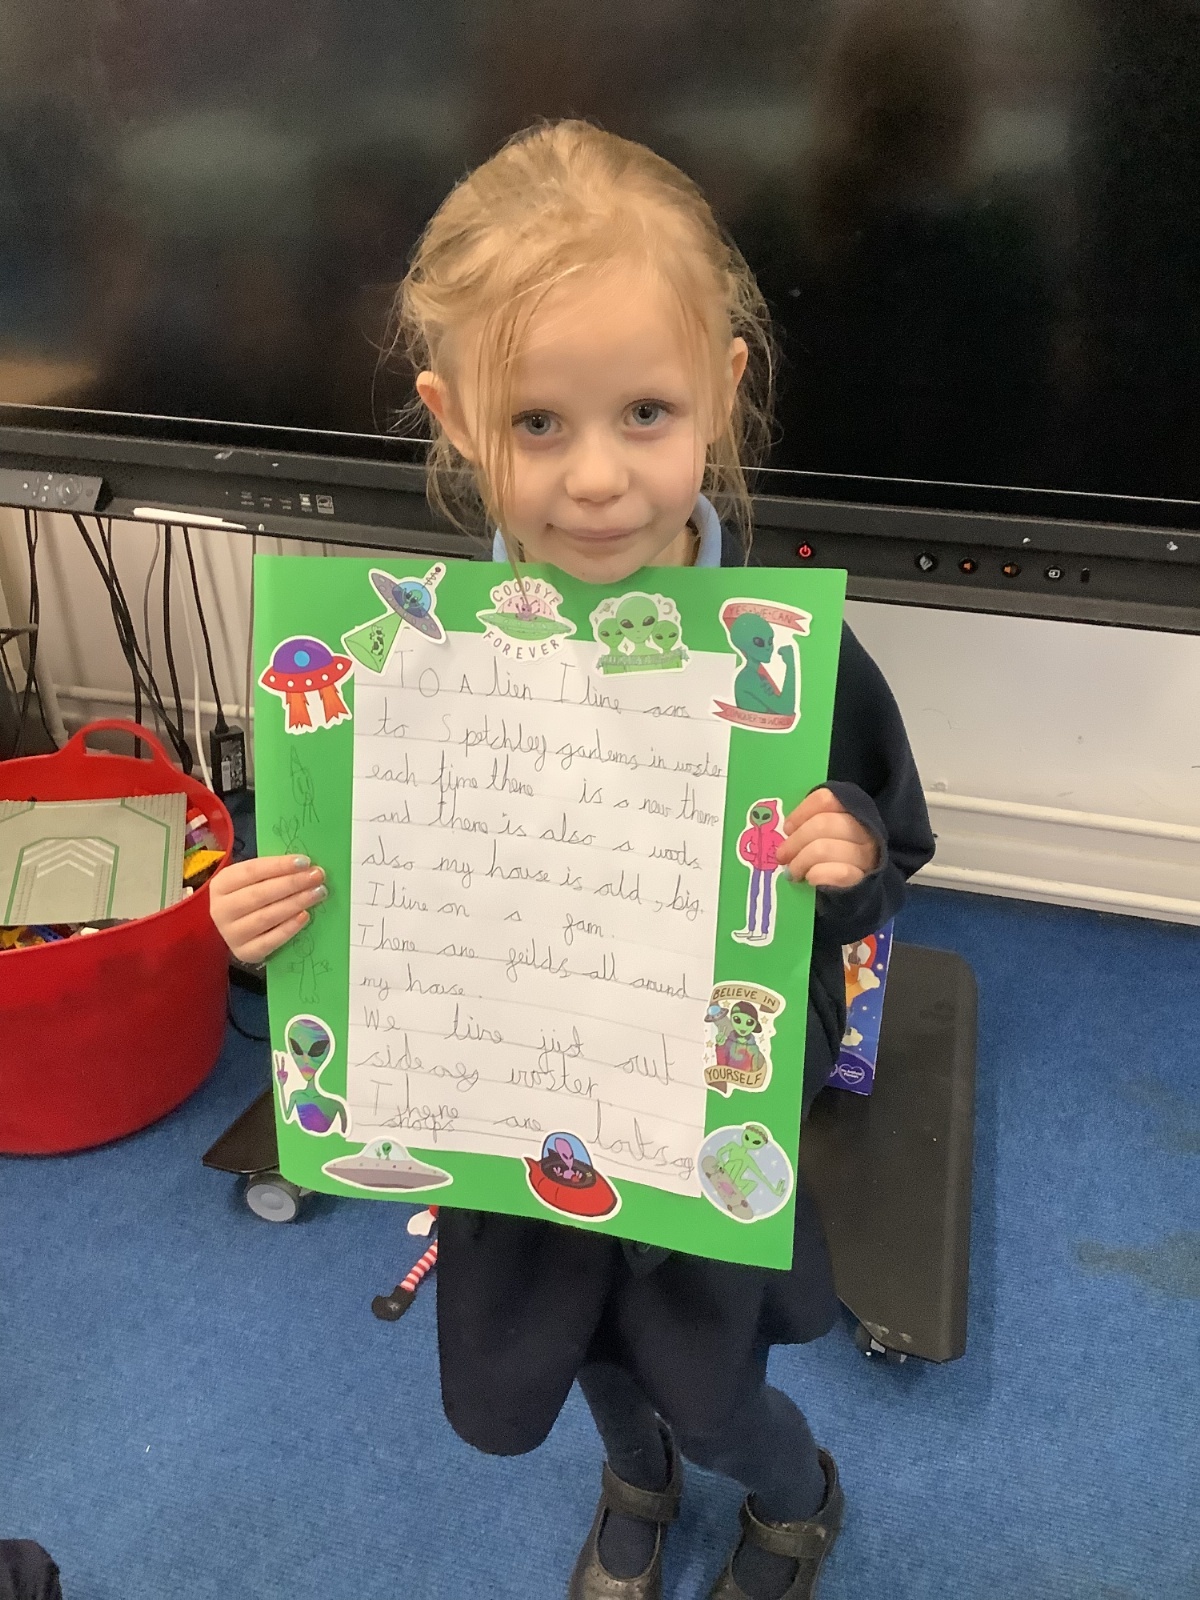 GOODBYE
FOREVER
YES WE CAN
CONQUER THE WORLD
TO A lien I live acros
to Spetchley gardens in woster
each time there is a new theme
and there is also a woods
also my house is old , big.
I live on a fam.
There are feilds all around
my house.
We live jist out
side woster
There are lorts og
shops
BELIEVE IN
YOURSELF